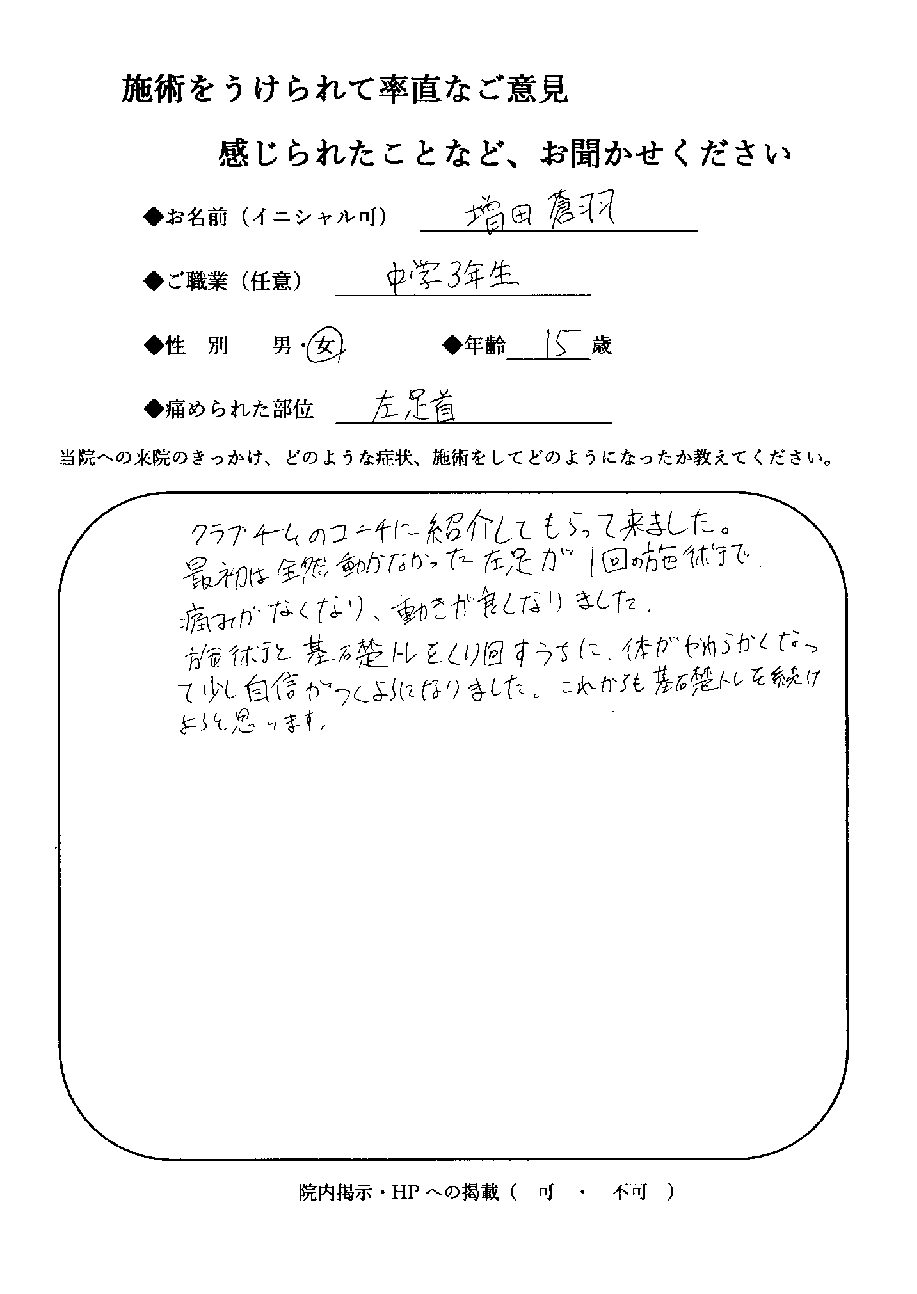 施術をうけられて率直なご意見
感じられたことなど、お聞かせください
◆お名前（イニシャル可） 増田 蒼羽
◆ご職業（任意） 中学3年生
◆性 別 男・女 ◆年齢 15 歳
◆痛められた部位 左足首
当院への来院のきっかけ、どのような症状、施術をしてどのようになったか教えてください。
クラブチームのコーチに紹介してもらって来ました。
最初は全然動かなかった左足が1回の施術で
痛みがなくなり、動きが良くなりました。
施術と基礎トレをくり回すうちに、体がやわらかくなっ
て少し自信がつくようになりました。これからも基礎トレを続け
ようと思います。
院内掲示・HPへの掲載（ 可 ・ 不可 ）